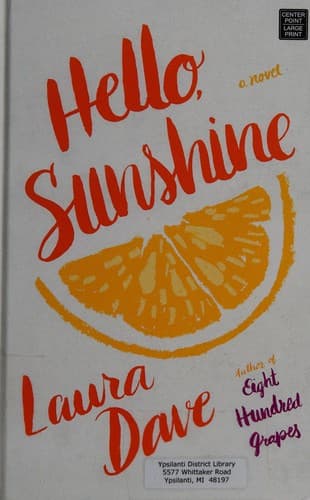 CENTER
POINT
LARGE
PRINT
Hello,
a novel
Sunshine
Laura
Dave
Author of
Eight
Hundred
Grapes
Ypsilanti District Library
5577 Whittaker Road
Ypsilanti, MI 48197